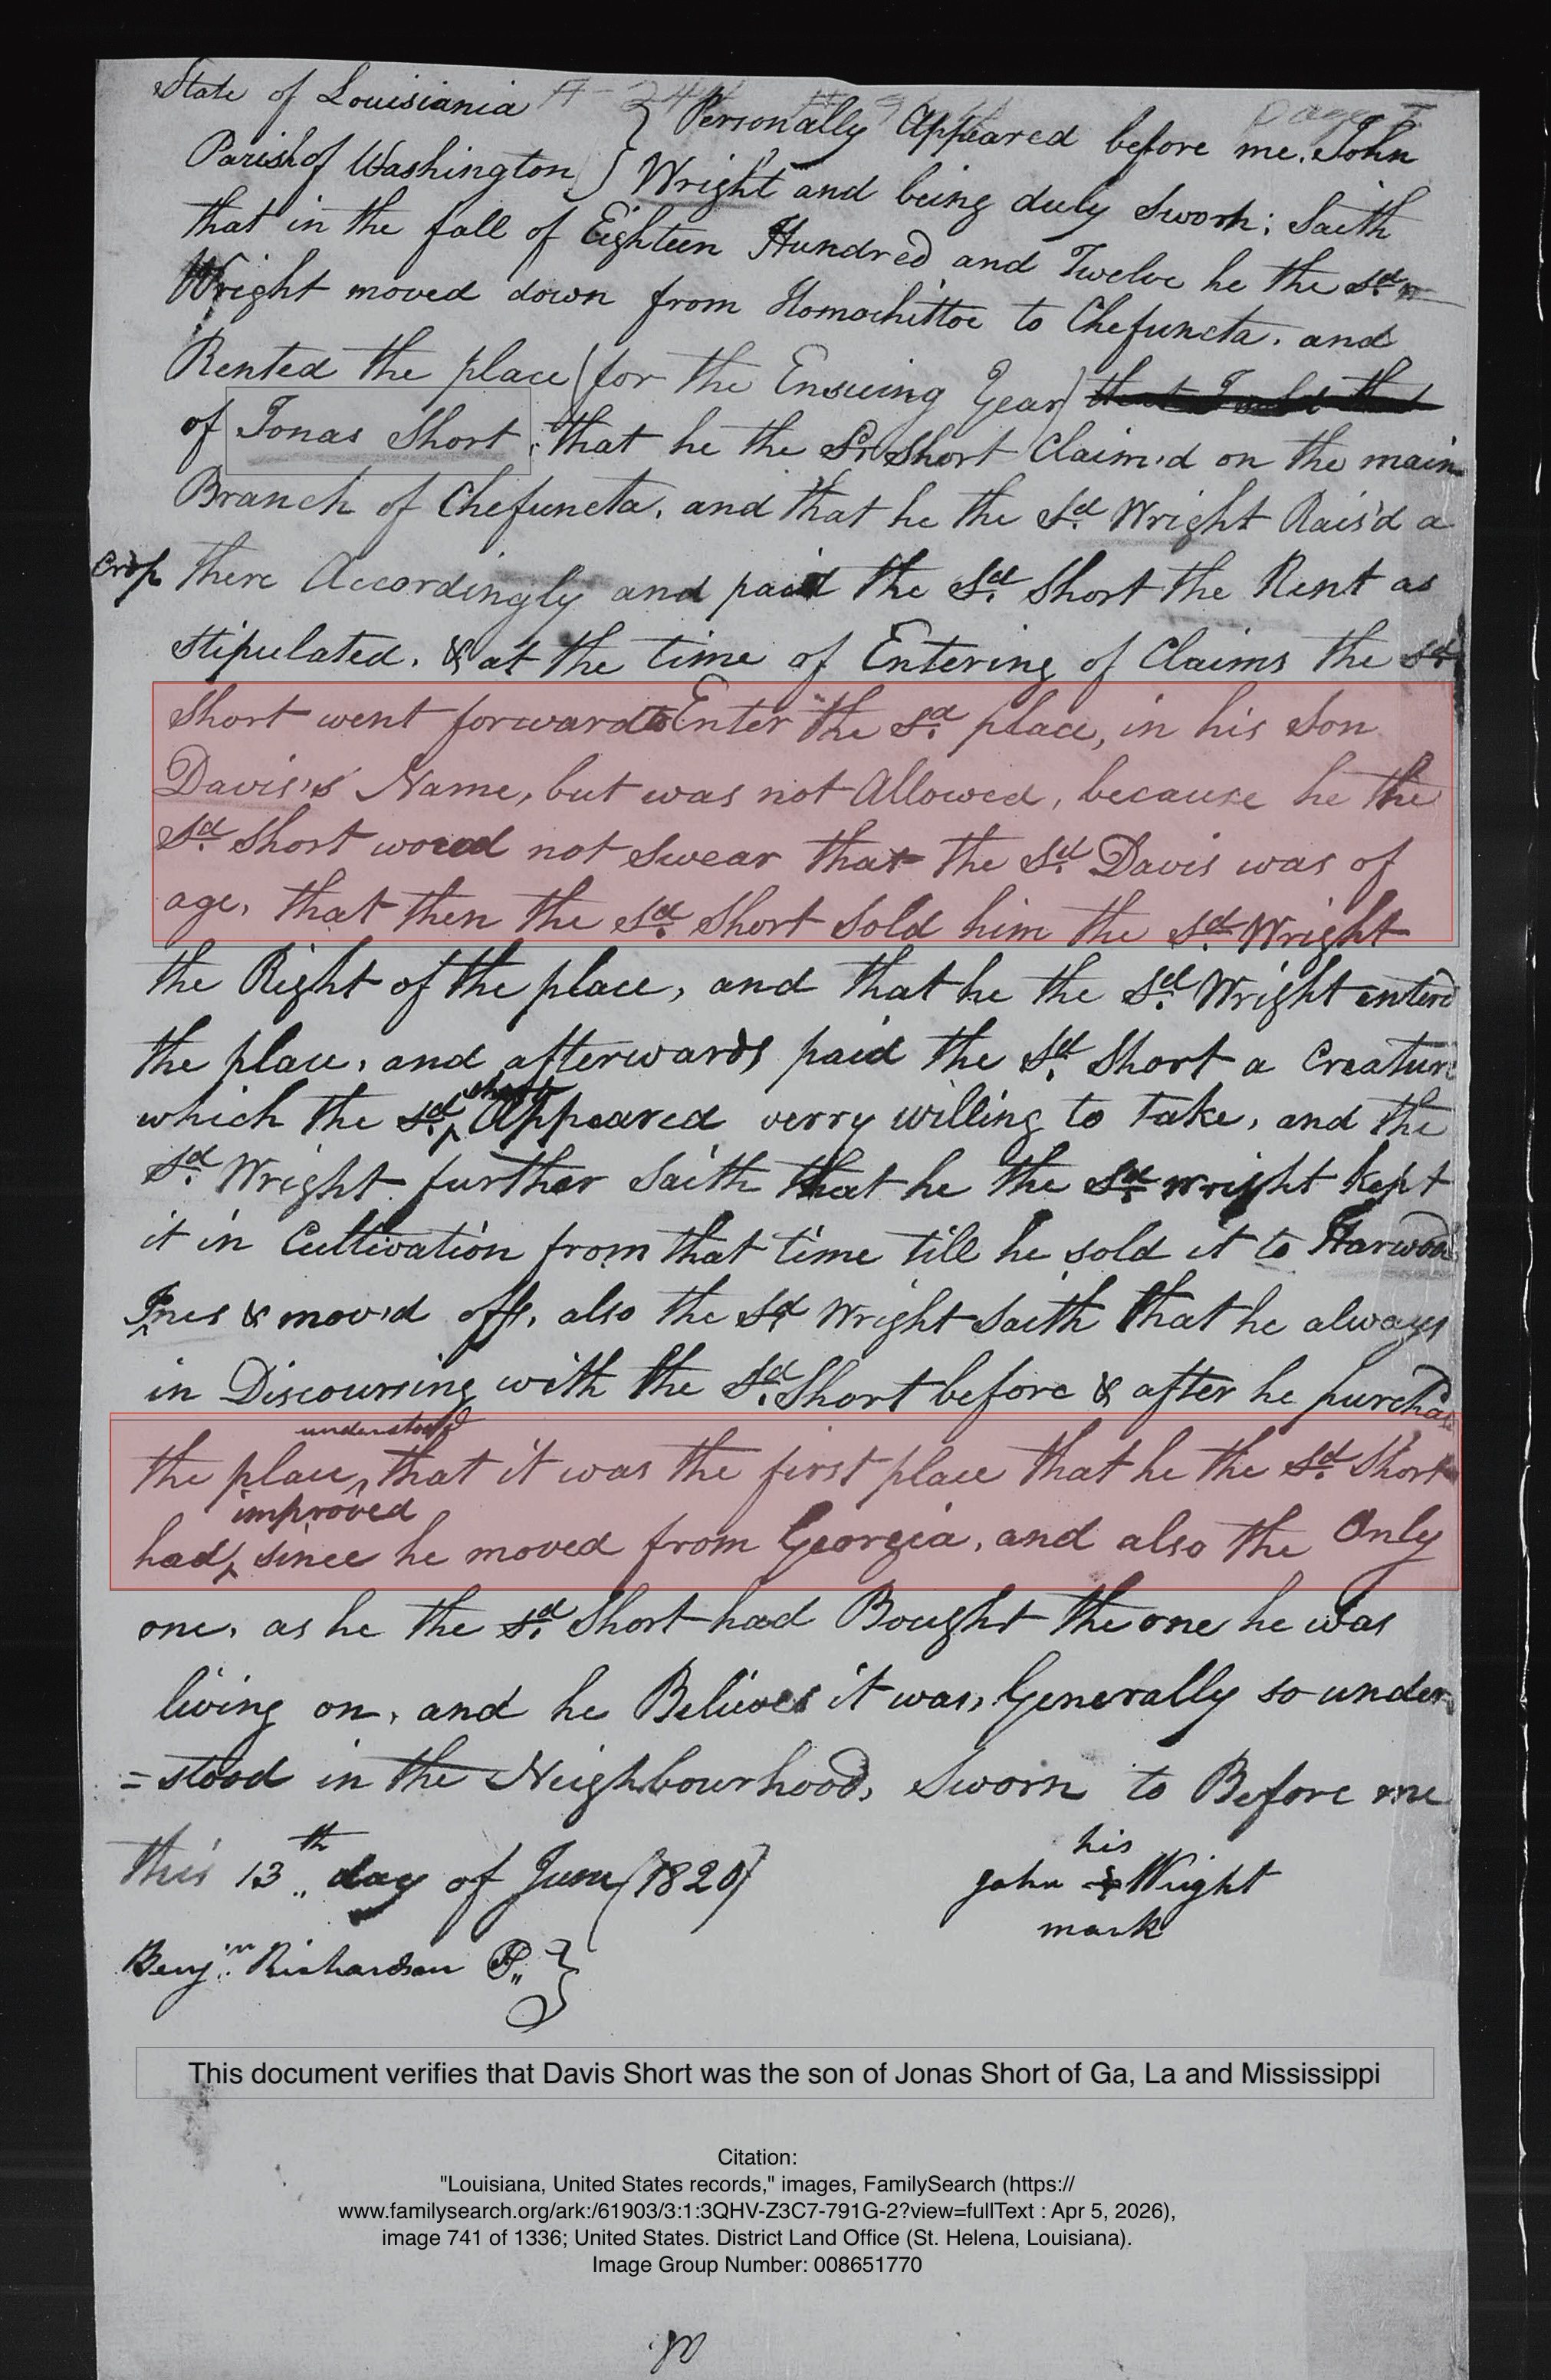 State of Louisiania } Personally Appeared before me. John
Parish of Washington } Wright and being duly sworn; Saith
that in the fall of Eighteen Hundred and Twelve he the sd.
Wright moved down from Homochittoe to Chefuncta. and
Rented the place (for the Ensueing Year)
of Jonas Short. that he the Sd. Short Claim'd on the main
Branch of Chefuncta, and that he the sd. Wright Rais'd a
Crop there Accordingly and paid the sd. Short the Rent as
stipulated. & at the time of Entering of Claims the sd.
Short went forward to Enter the sd. place, in his Son
Davis's Name, but was not Allowed, because he the
sd. Short woud not swear that the sd. Davis was of
age, that then the sd. Short Sold him the sd. Wright
the Right of the place, and that he the sd. Wright enterd
the place, and afterwards paid the sd. Short a Creature
which the sd. Short Appeared verry willing to take, and the
sd. Wright further Saith that he the sd. Wright kept
it in Cultivation from that time till he sold it to Harwood
Ines & mov'd off, also the sd. Wright Saith that he always
in Discoursing with the sd. Short before & after he purchas
the place, understood that it was the first place that he the sd. Short
had improved since he moved from Georgia, and also the Only
one, as he the sd. Short had Bought the one he was
living on, and he Believes it was, Generally so under
=stood in the Neighbourhood, Sworn to Before me
this 13th day of June (1820)
his
John Wright
mark
Benjn. Richardson
This document verifies that Davis Short was the son of Jonas Short of Ga, La and Mississippi
Citation:
"Louisiana, United States records," images, FamilySearch (https://
www.familysearch.org/ark:/61903/3:1:3QHV-Z3C7-791G-2?view=fullText : Apr 5, 2026),
image 741 of 1336; United States. District Land Office (St. Helena, Louisiana).
Image Group Number: 008651770